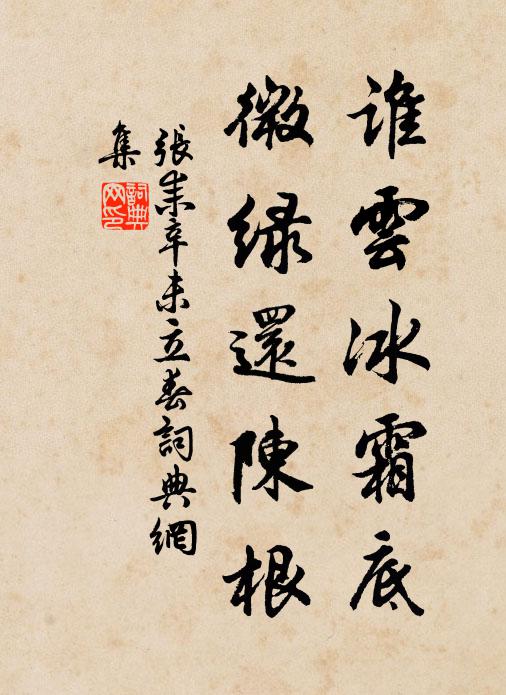 誰雲冰霜底
微綠還陳根
張耒辛未立春詞典網
集
詞典
網印